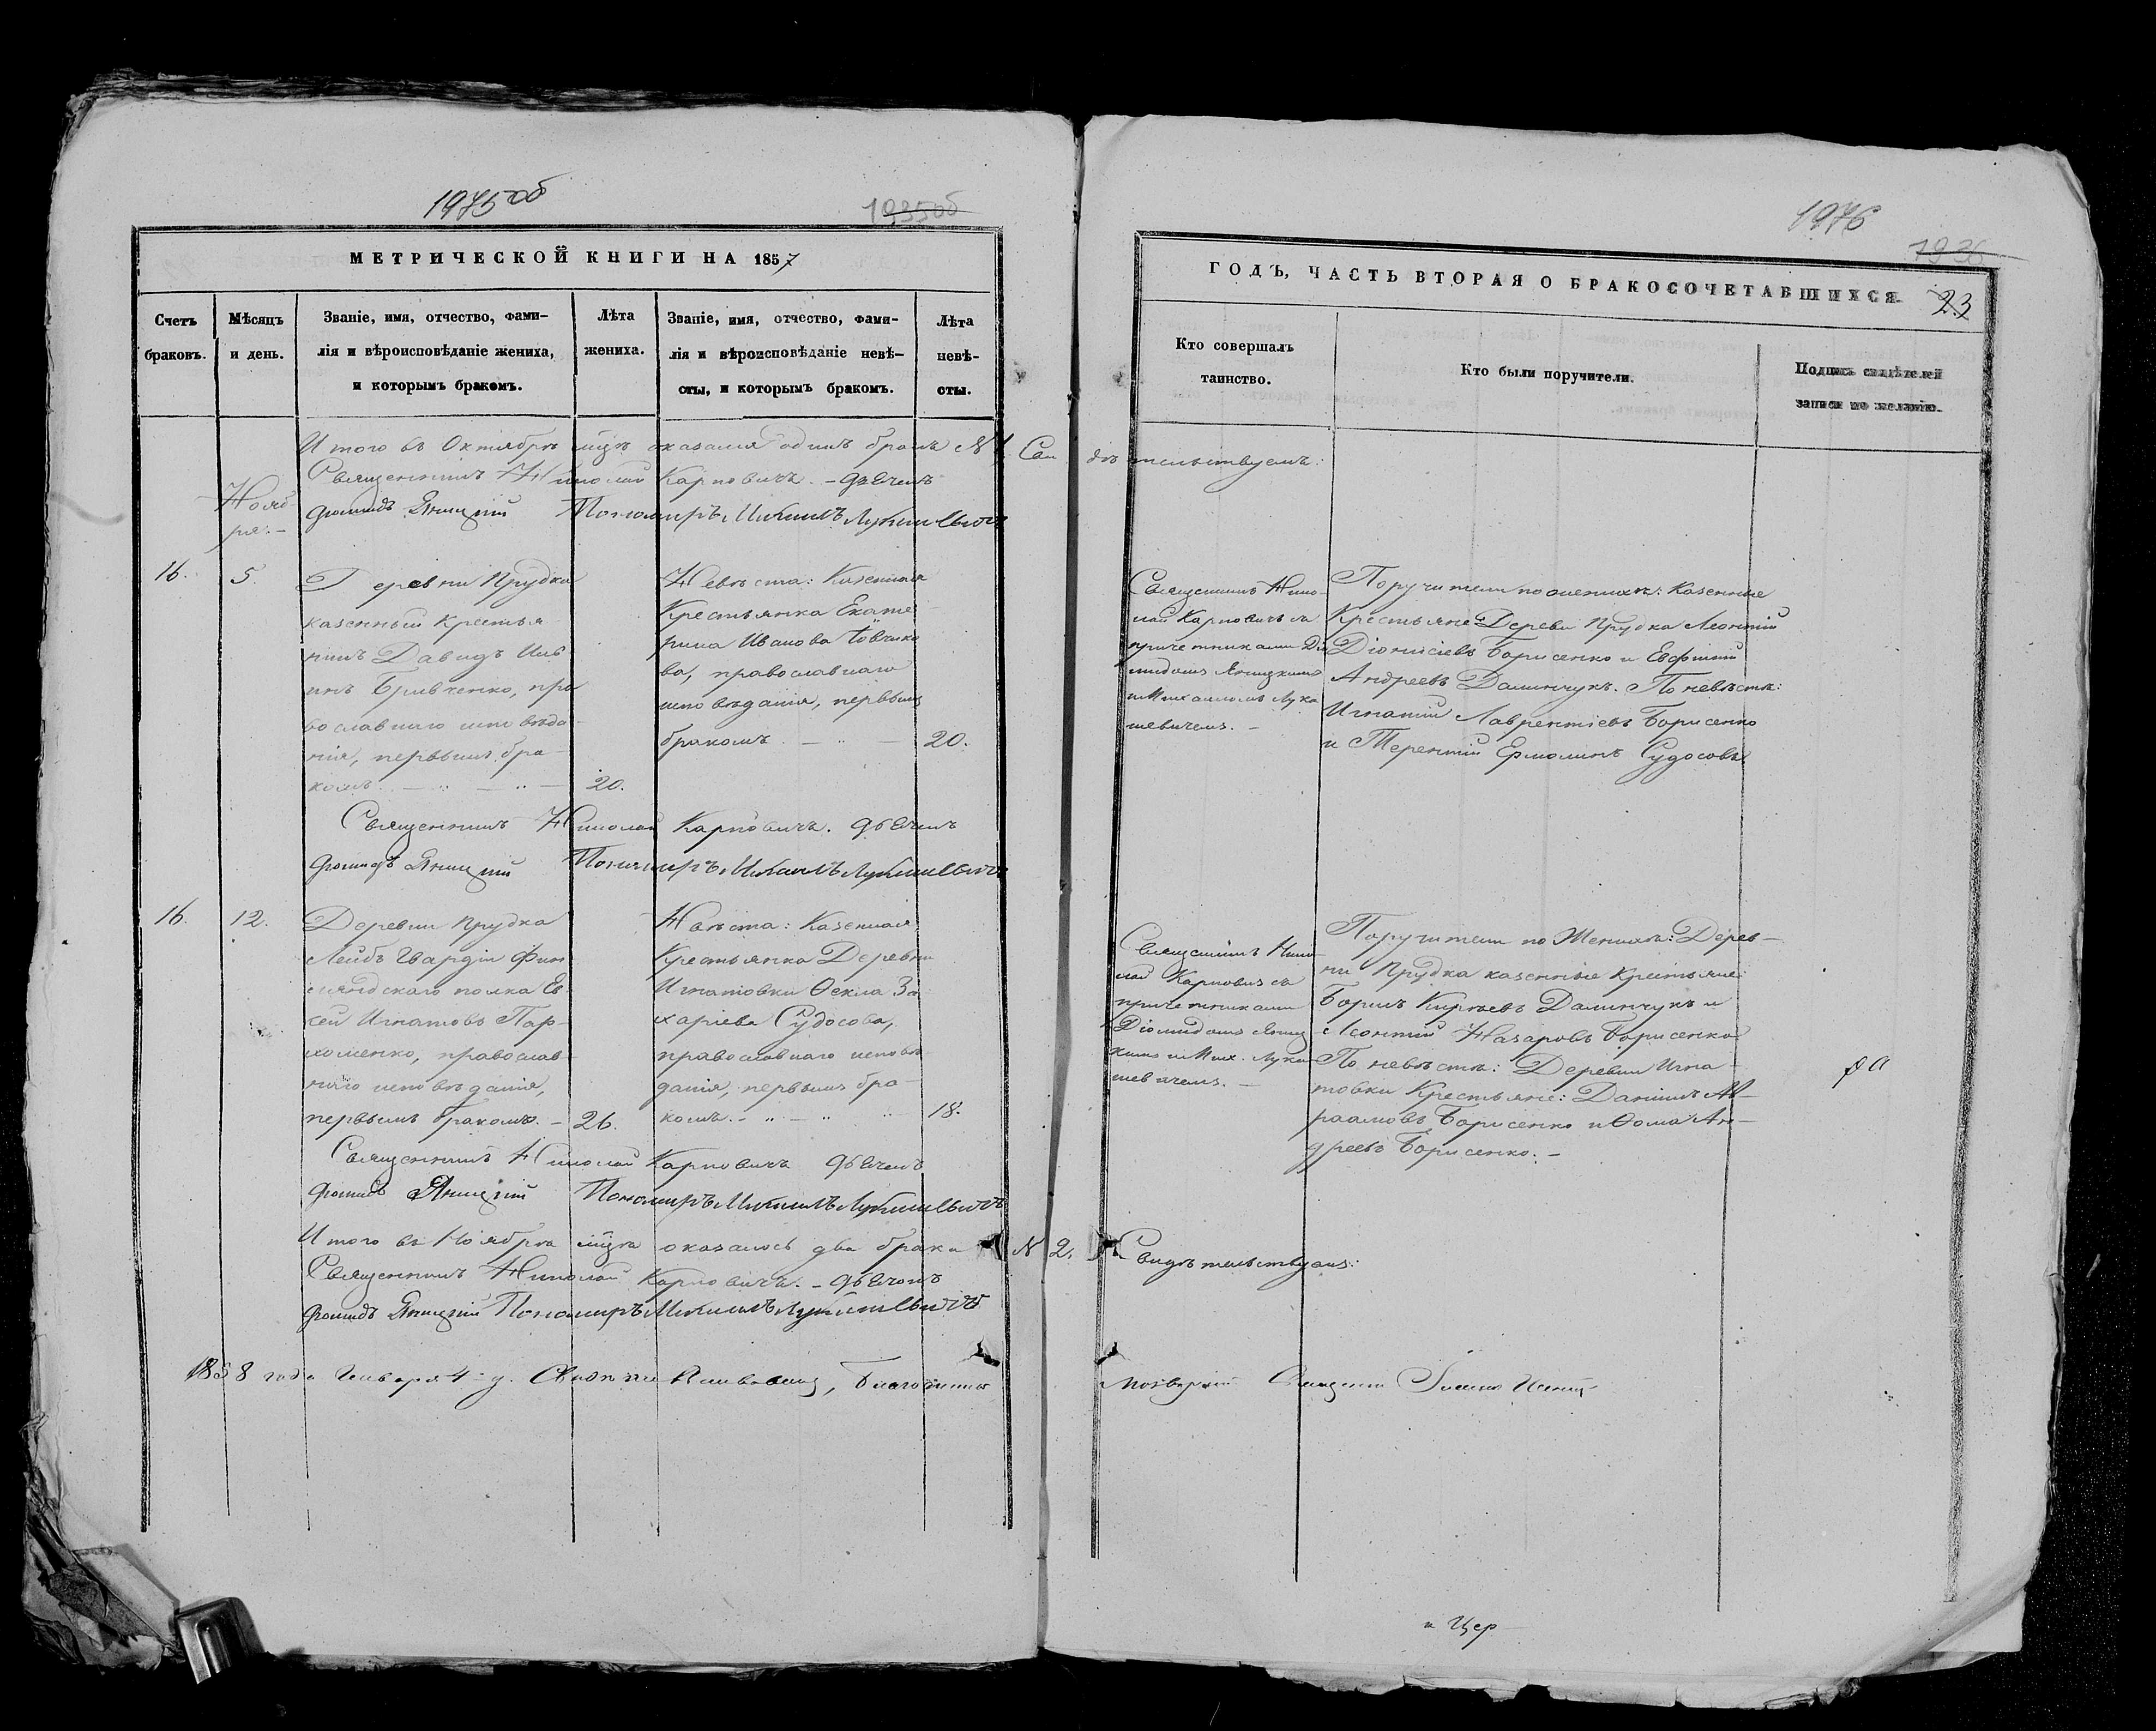 1975 об
1935 об
МЕТРИЧЕСКОЙ КНИГИ НА 1857
Счетъ браковъ.
Мѣсяцъ и день.
Званіе, имя, отчество, фами-
лія и вѣроисповѣданіе жениха,
и которымъ бракомъ.
Лѣта
жениха.
Званіе, имя, отчество, фами-
лія и вѣроисповѣданіе невѣ-
сты, и которымъ бракомъ.
Лѣта
невѣ-
сты.
Итого въ Октябрѣ мцѣ оказался одинъ бракъ № 1. Сви
Священникъ Николай Карповичъ. -
Нояб
ря. -
Пономарь Михаилъ Лукашевичъ
16.
5.
Деревни Прудка
казенный Крестья
нинъ Давидъ
Бривченко, пра
вославнаго исповѣда-
нія, первымъ бра-
комъ
20.
Невѣста: Казенная
Крестьянка Екате
рина Иванова
ва, православнаго
исповѣданія, первымъ
бракомъ
20.
Священникъ Николай Карповичъ.
Пономарь Михаилъ Лукашевичъ
16.
12.
Деревни Прудка
Лейбъ Гвардіи Фин-
ляндскаго полка Ев
сей Игнатовъ Пар-
хоменко, православ-
наго исповѣданія,
первымъ бракомъ. -
26.
Невѣста: Казенная
Крестьянка Деревни
Игнатовки Ѳекла За
харіева Судосова,
православнаго исповѣ
данія, первымъ бра-
комъ. -
18.
Священникъ Николай Карповичъ
Пономарь Михаилъ Лукашевичъ
Итого въ Ноябрѣ мцѣ оказалось два брака № 2.
Священникъ Николай Карповичъ. -
Пономарь Михаилъ Лукашевичъ
1858 года Генваря 4
1976
1936
ГОДЪ, ЧАСТЬ ВТОРАЯ О БРАКОСОЧЕТАВШИХСЯ.
23
Кто совершалъ
таинство.
Кто были поручители.
Подпись свидѣтелей
записи по желанію.
дѣтельствуемъ:
Священникъ Нико-
лай Карповичъ съ
причетниками Ді
мидомъ Яницкимъ
и Михаиломъ Лука
шевичемъ. -
Поручители по женихѣ: Казенные
Крестьяне Деревни Прудка Леонтій
Діонисіевъ Борисенко и Евфимій
Андреевъ Далинчукъ. По невѣстѣ:
Игнатій Лаврентіевъ Борисенко
и Терентій Ермолинъ Судосовъ
Священникъ Нико
лай Карповичъ съ
причетниками
Діомидомъ Яниц
кимъ и Мих. Лука
шевичемъ. -
Поручители по Женихѣ: Дерев-
ни Прудка казенные Крестьяне:
Борисъ Кирѣевъ Далинчукъ и
Леонтій Назаровъ Борисенко
По невѣстѣ: Деревни Игна-
товки Крестьяне: Даніилъ Ав-
раамовъ Борисенко и Ѳома Ан-
дреевъ Борисенко. -
Свидѣтельствуемъ:
и Цер